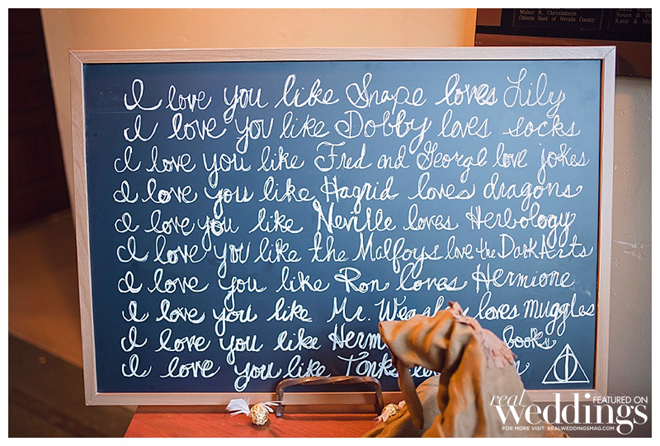 Walter R. Christensen
Citizens Bank of Nevada County
I love you like Snape loves Lily
I love you like Dobby loves socks
I love you like Fred and George love jokes
I love you like Hagrid loves dragons
I love you like Neville loves Herbology
I love you like the Malfoys love the Dark Arts
I love you like Ron loves Hermione
I love you like Mr. loves muggles
I love you like books
I love you like
real weddings
FEATURED ON
FOR MORE VISIT: REALWEDDINGSMAG.COM